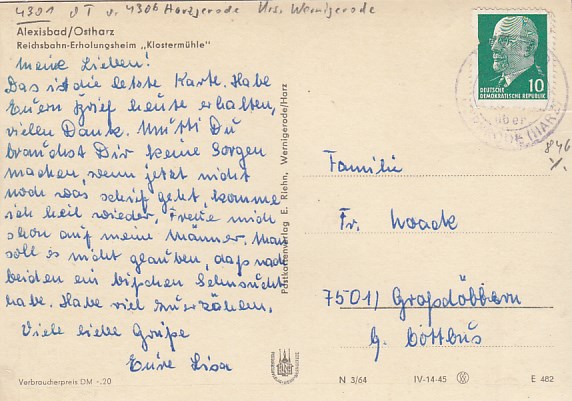 4301 OT v. 4306 Harzgerode Krs. Wernigerode
Alexisbad/Ostharz
Reichsbahn-Erholungsheim „Klostermühle"
Meine Lieben!
Das ist die letzte Karte. Habe
Euern Brief heute erhalten,
vielen Dank. Mutti Du
brauchst Dir keine Sorgen
machen, wenn jetzt nicht
noch was schief geht, komme
ich heil wieder. Freue mich
schon auf meine Männer. Man
soll es nicht glauben, daß nach
beiden ein bißchen Sehnsucht
habe. Habe viel zu erzählen.
Viele liebe Grüße
Eure Lisa
Verbraucherpreis DM -.20
Postkartenverlag E. Riehn, Wernigerode/Harz
10
DEUTSCHE
DEMOKRATISCHE REPUBLIK
über
846
Familie
Fr. Noack
7501/ Großdöbbern
b. Cottbus
N 3/64
IV-14-45
E 482